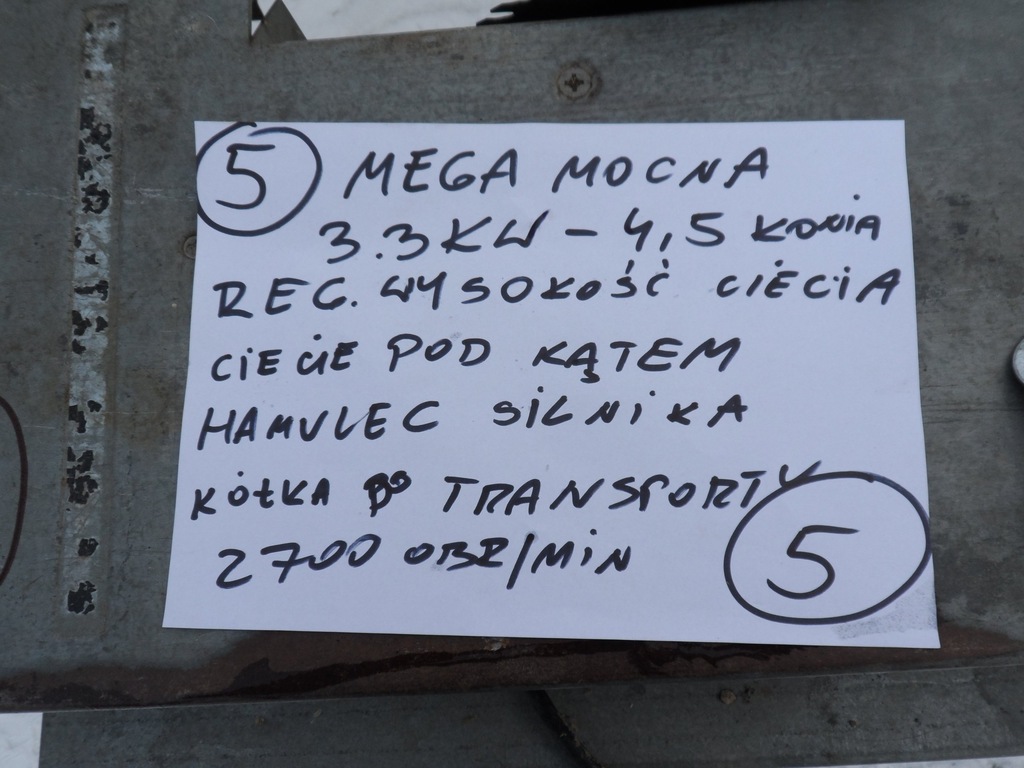 5 MEGA MOCNA
3.3KW - 4,5 KONIA
REG. WYSOKOŚĆ CIĘCIA
CIECIE POD KĄTEM
HAMULEC SILNIKA
KÓŁKA DO TRANSPORTU
2700 OBR/MIN 5